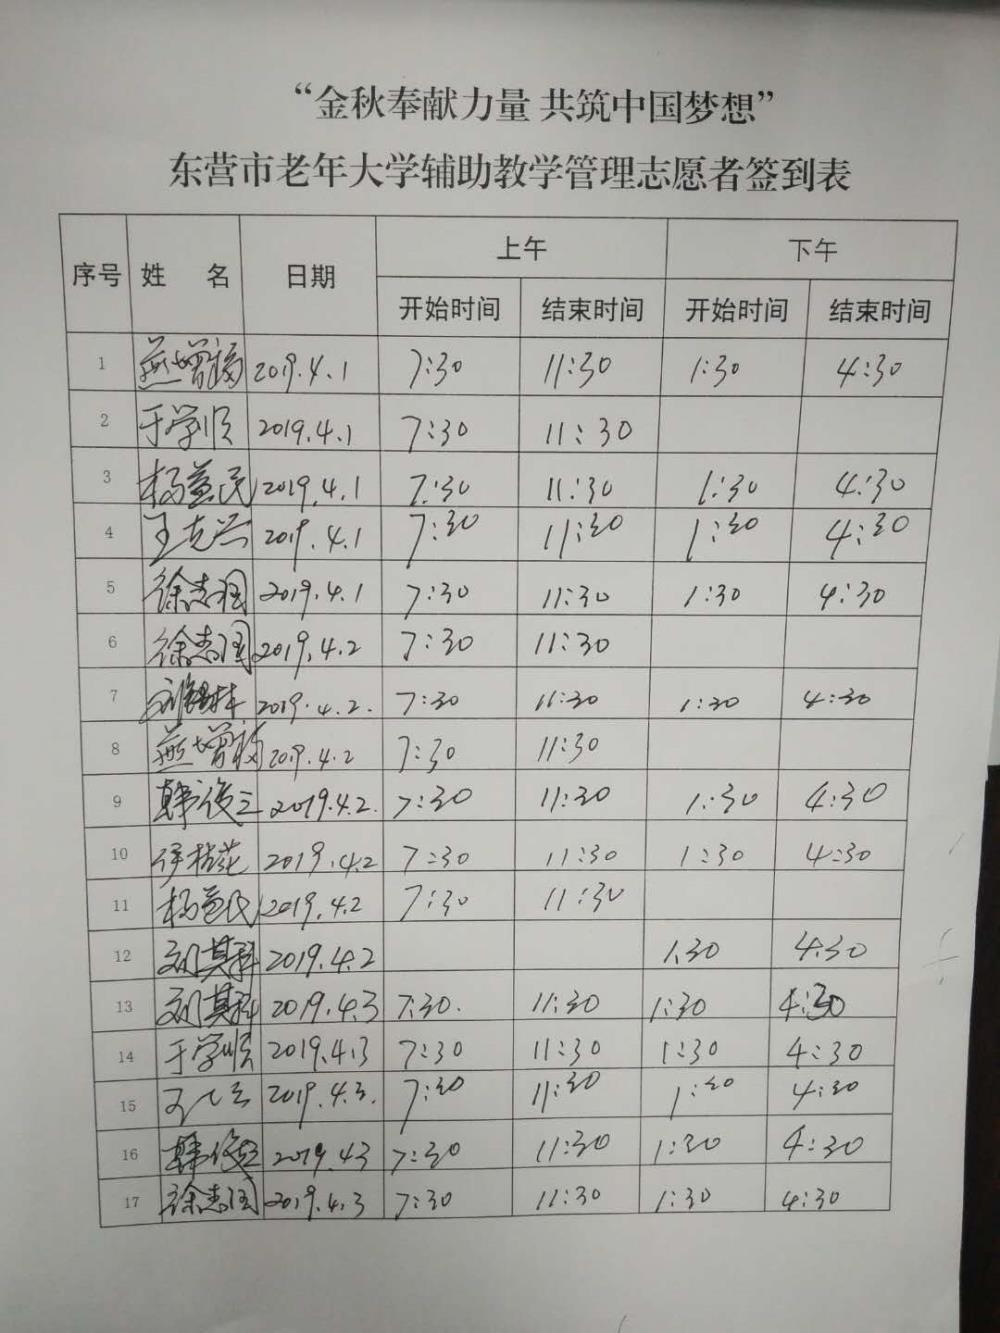 “金秋奉献力量 共筑中国梦想”
东营市老年大学辅助教学管理志愿者签到表
序号 姓 名 日期 上午 下午
开始时间 结束时间 开始时间 结束时间
1 燕增福 2019.4.1 7:30 11:30 1:30 4:30
2 于学顺 2019.4.1 7:30 11:30
3 杨益民 2019.4.1 7:30 11:30 1:30 4:30
4 王克兴 2019.4.1 7:30 11:30 1:30 4:30
5 徐志国 2019.4.1 7:30 11:30 1:30 4:30
6 徐志国 2019.4.2 7:30 11:30
7 2019.4.2. 7:30 11:30 1:30 4:30
8 燕增福 2019.4.2 7:30 11:30
9 韩俊三 2019.4.2. 7:30 11:30 1:30 4:30
10 2019.4.2 7:30 11:30 1:30 4:30
11 杨益民 2019.4.2 7:30 11:30
12 刘其科 2019.4.2 1:30 4:30
13 刘其科 2019.4.3 7:30. 11:30 1:30 4:30
14 于学顺 2019.4.3 7:30 11:30 1:30 4:30
15 2019.4.3. 7:30 11:30 1:30 4:30
16 韩俊三 2019.4.3 7:30 11:30 1:30 4:30
17 徐志国 2019.4.3 7:30 11:30 1:30 4:30